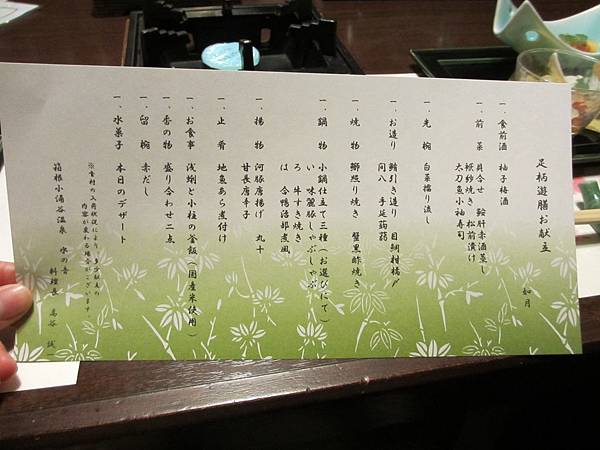 足柄遊膳お献立
如月
一、食前酒 柚子梅酒
一、前菜 貝合せ 鮟肝赤酒蒸し
松前漬け
太刀魚小袖寿司
一、先椀 白菜擂り流し
一、お造り 鮪引き造り 目鯛柑橘〆
間八 手足蒟蒻
一、焼物 鰤照り焼き 蟹黒酢焼き
一、鍋物 小鍋仕立て三種(お選びにて)
い 味麗豚しゃぶしゃぶ
ろ 牛すき焼き
は 合鴨治部煮風
一、揚物 河豚唐揚げ 丸十
甘長唐辛子
一、止肴 地魚あら煮付け
一、お食事 浅蜊と小柱の釜飯(国産米使用)
一、香の物 盛り合わせ二点
一、留椀 赤だし
一、水菓子 本日のデザート
※食材の入荷状況により、多少献立の
内容が変わる場合がございます。
箱根小涌谷温泉 水の音
料理長 湯谷 誠一